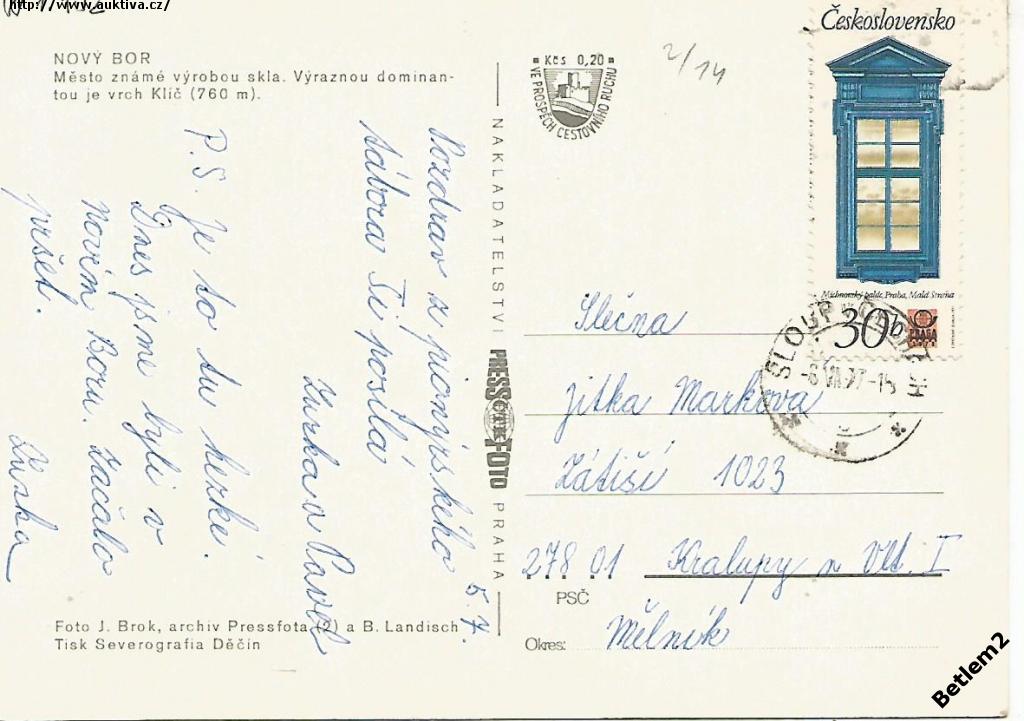 http://www.auktiva.cz/
NOVÝ BOR
Město známé výrobou skla. Výraznou dominan-
tou je vrch Klíč (760 m).
Kčs 0,20
VE PROSPĚCH CESTOVNÍHO RUCHU
2/14
Československo
Michnovský palác, Praha, Malá Strana
30h
PRAGA
SLOUP
-8.VII.77-15
5.7.
Pozdrav z pionýrského
tábora Ti posílá
Zurka a Pavel
P.S. Je to tu hezké.
Dnes jsme byli v
Novém Boru. Začalo
pršet.
NAKLADATELSTVÍ PRESSFOTO PRAHA
ČTK
Slečna
Jitka Markova
Zátiší 1023
278 01 Kralupy n Vlt. I
PSČ
Okres: Mělník
Foto J. Brok, archiv Pressfota (2) a B. Landisch
Tisk Severografia Děčín
Betlem2